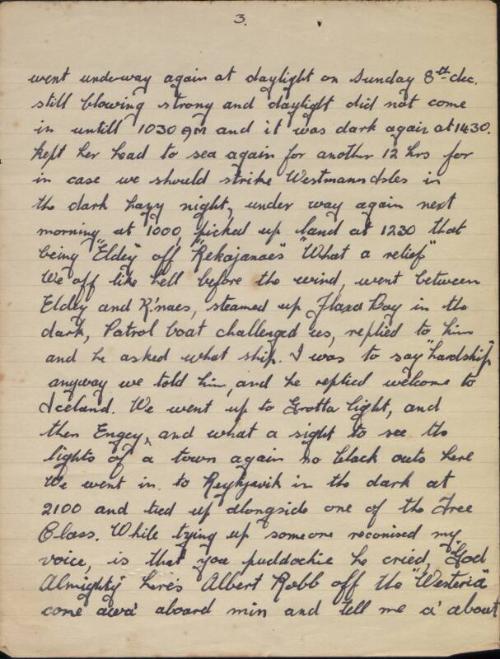 3.
went underway again at daylight on Sunday 8th dec.
still blowing strong and daylight did not come
in untill 1030 am and it was dark again at 1430.
kept her head to sea again for another 12 hrs for
in case we should strike Westmann Isles in
the dark hazy night, under way again next
morning at 1000, picked up land at 1230 that
being "Eldey" off "Rekajanaes" "What a relief"
We off like hell before the wind, went between
Eldey and R'naes, steamed up Flaxa Bay in the
dark, Patrol boat challenged us, replied to him
and he asked what ship. I was to say "hardship"
anyway we told him, and he replied welcome to
Iceland. We went up to Grotta light, and
then Engey, and what a sight to see the
lights of a town again no black outs here
We went in to Reykjavik in the dark at
2100 and tied up alongside one of the Tree
Class. While tying up someone reconised my
voice, is that you puddochie he cried, "God
Almighty" here's Albert Robb off the "Westeria"
come awa' aboard min and tell me a' about